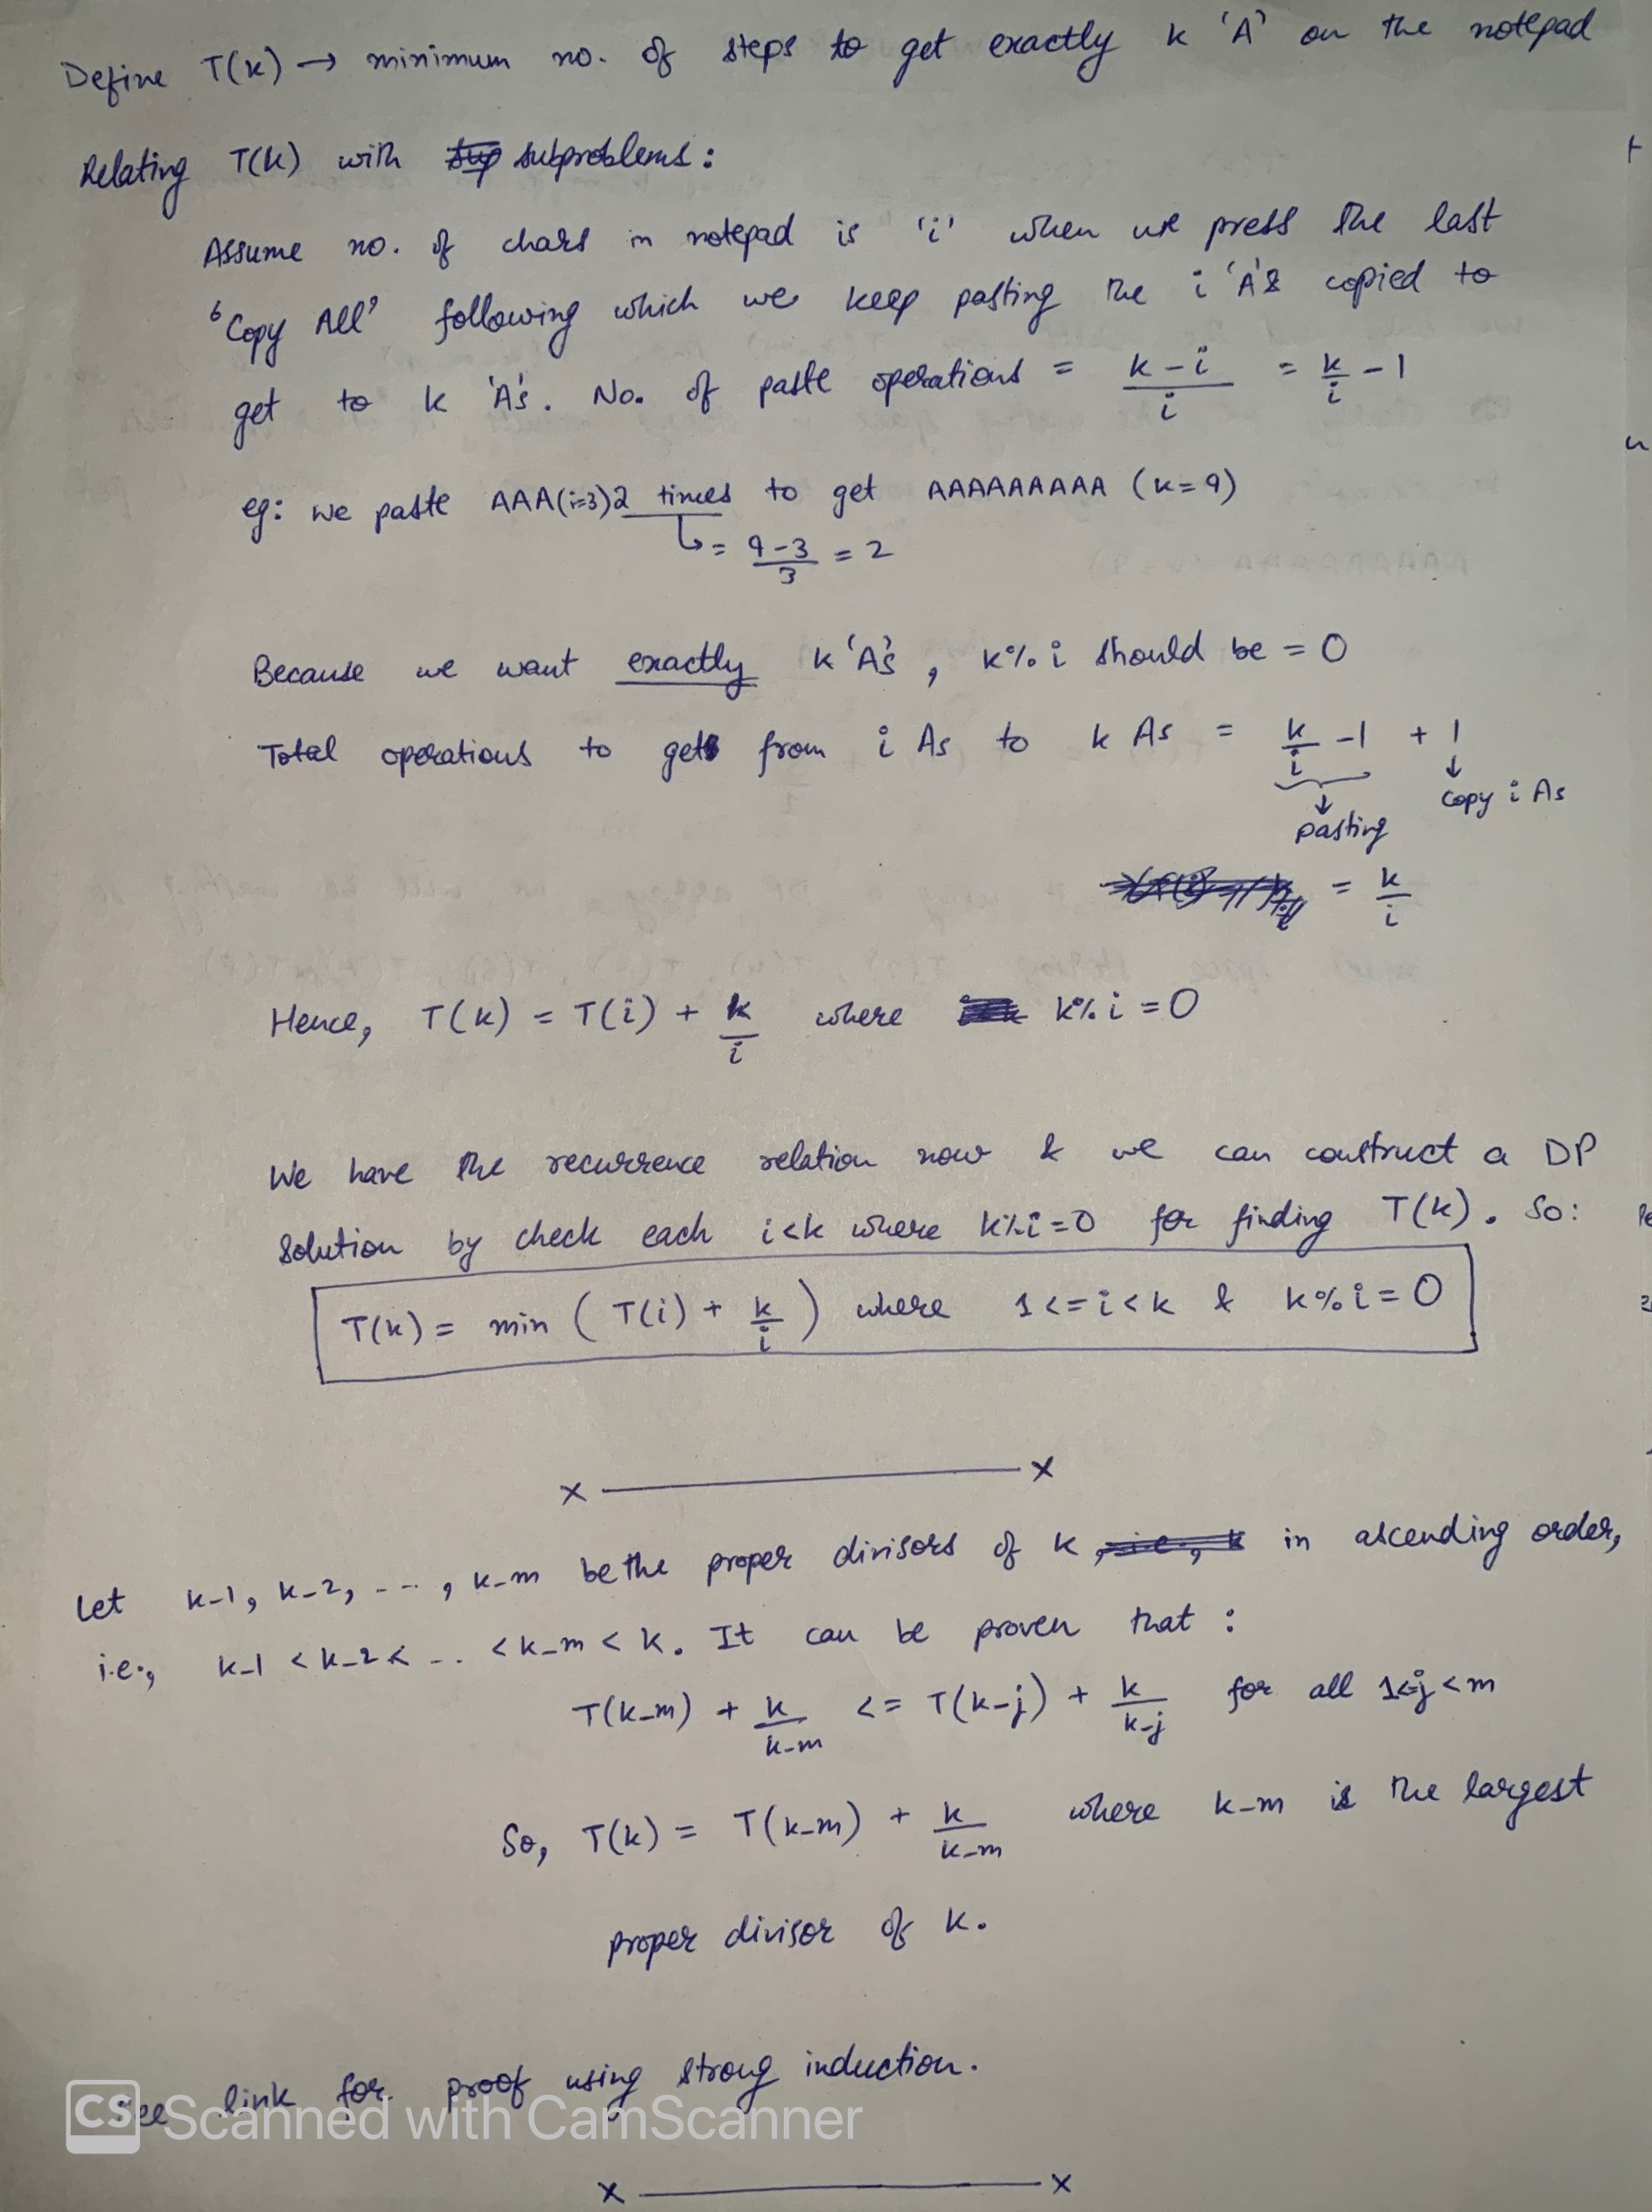 Define T(k) → minimum no. of steps to get exactly k 'A' on the notepad
Relating T(k) with subproblems:
Assume no. of chars in notepad is 'i' when we press the last
'Copy All' following which we keep pasting the i 'A's copied to
get to k 'A's. No. of paste operations = (k-i)/i = k/i - 1
eg: we paste AAA(i=3) 2 times to get AAAAAAAAA (k=9)
↳ = (9-3)/3 = 2
Because we want exactly k 'A's, k%i should be = 0
Total operations to get from i As to k As = k/i - 1 + 1
↓ pasting ↓ copy i As
= k/i
Hence, T(k) = T(i) + k/i where k%i = 0
We have the recurrence relation now & we can construct a DP
solution by check each i<k where k%i=0 for finding T(k). So:
T(k) = min ( T(i) + k/i ) where 1<=i<k & k%i = 0
x ——— x
Let k_1, k_2, ---, k_m be the proper divisors of k in ascending order,
i.e., k_1 < k_2 < .. < k_m < k. It can be proven that :
T(k_m) + k/k_m <= T(k_j) + k/k_j for all 1<=j<m
So, T(k) = T(k_m) + k/k_m where k_m is the largest
proper divisor of k.
See link for proof using strong induction.
CS Scanned with CamScanner
x ——— x